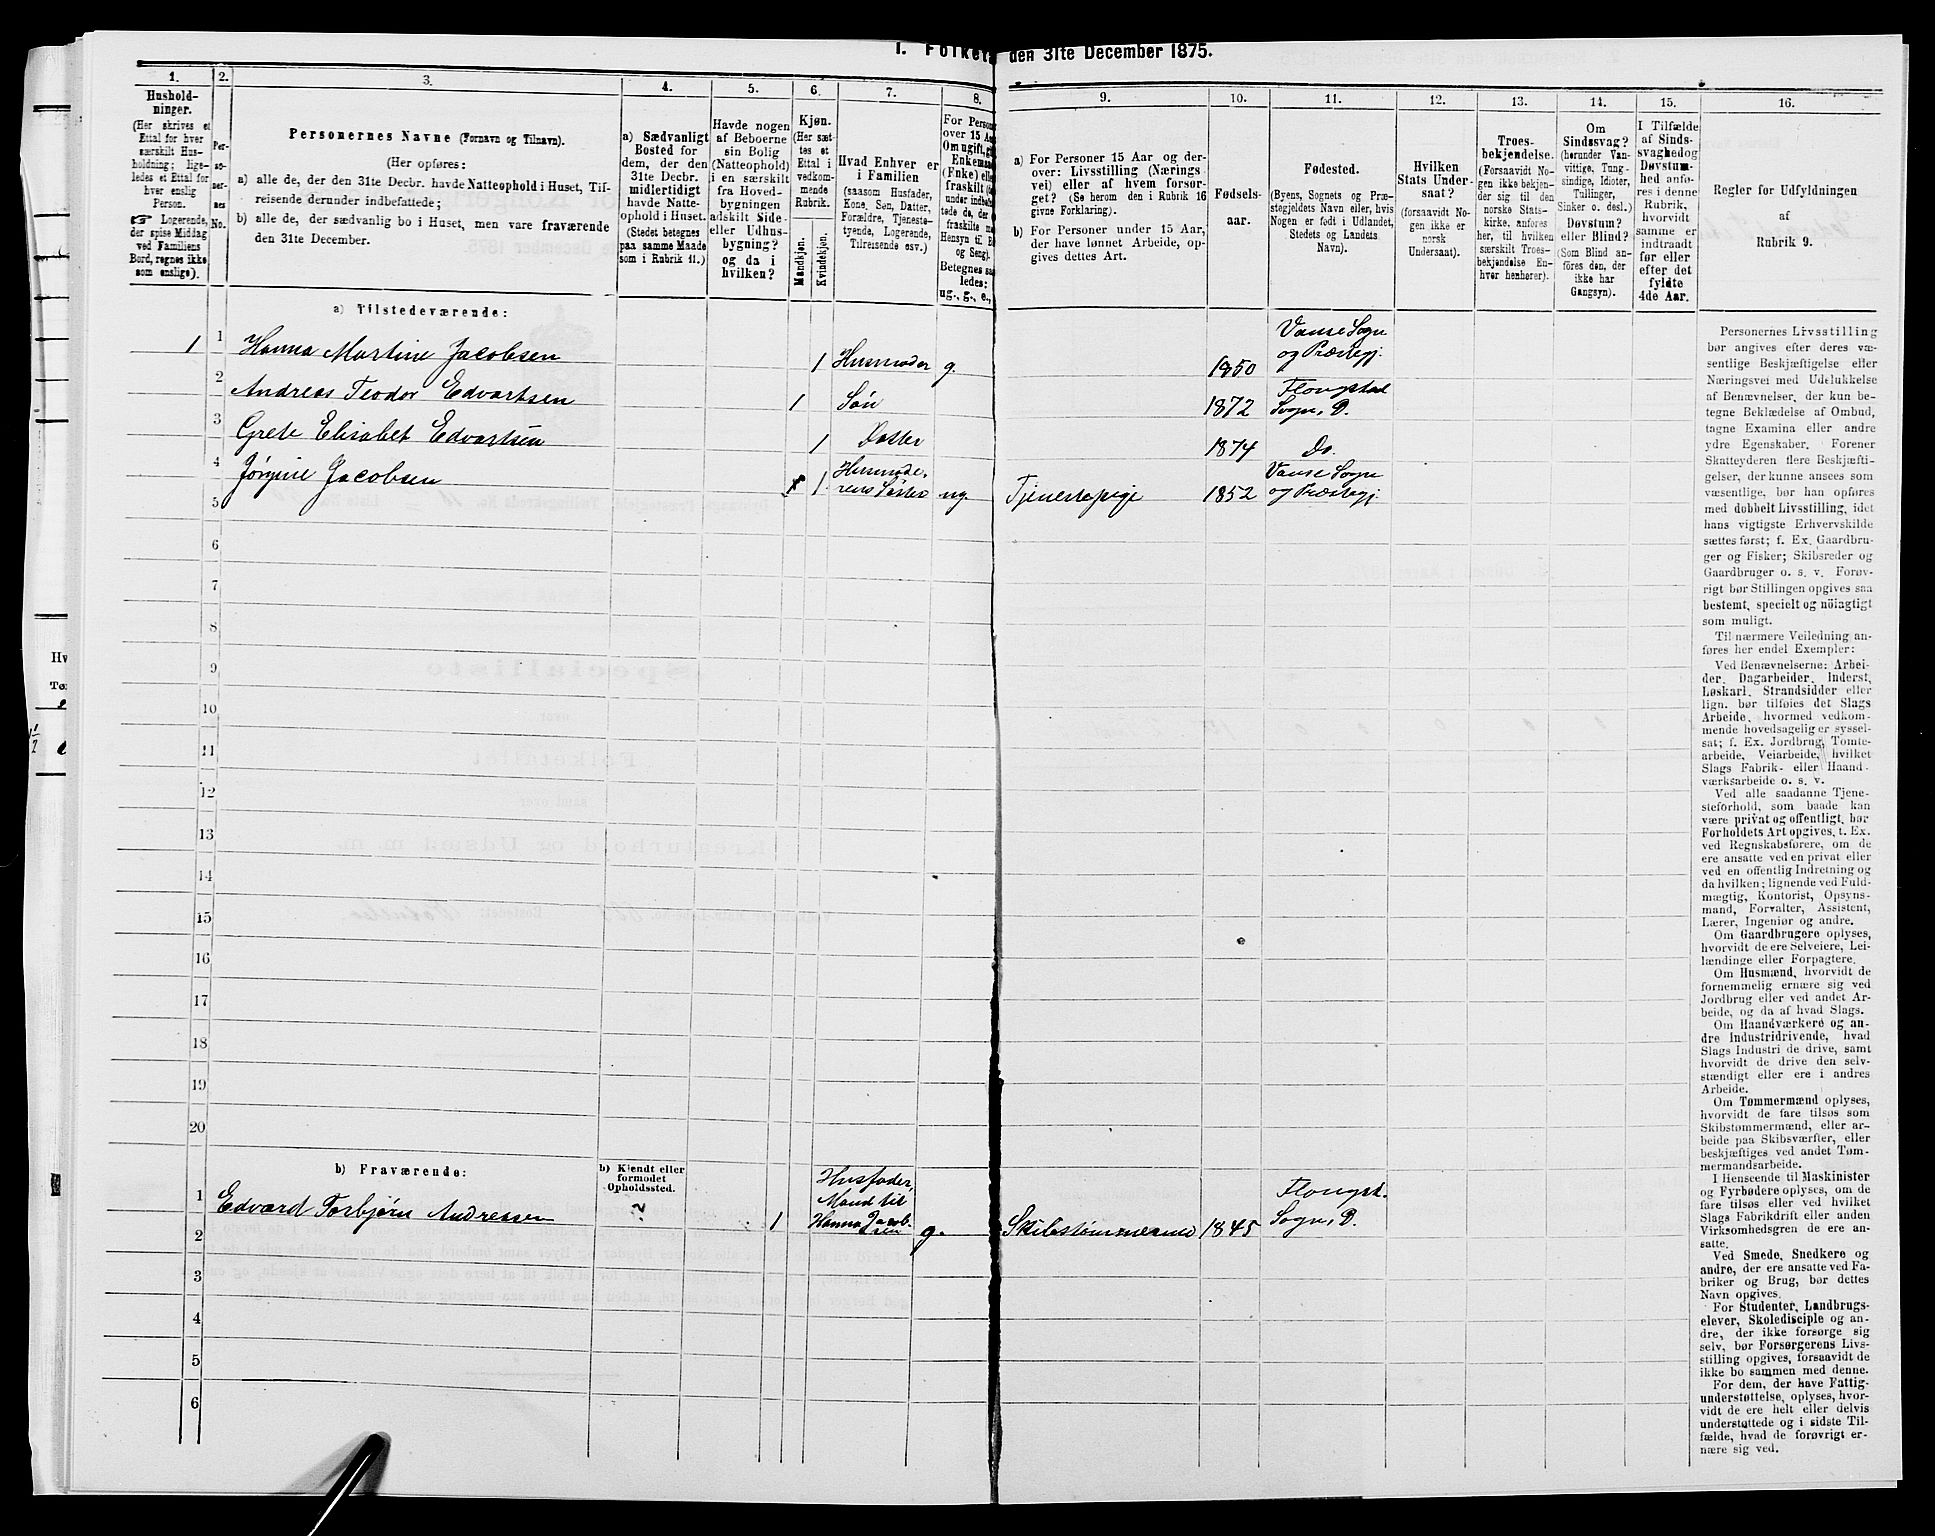 I. Folket
den 31te December 1875.
1.
2.
3.
4.
5.
6.
7.
8.
9.
10.
11.
12.
13.
14.
15.
16.
Hushold-
ninger.
(Her skrives et
Ettal for hver
særskilt Hus-
holdning; lige-
ledes et Ettal for
hver enslig
Person.
☞ Logerende,
der spise Middag
ved Familiens
Bord, regnes ikke
som enslige).
Per-
so-
ner-
nes
No.
Personernes Navne (Fornavn og Tilnavn).
(Her opføres:
a) alle de, der den 31te Decbr. havde Natteophold i Huset, Til-
reisende derunder indbefattede;
b) alle de, der sædvanlig bo i Huset, men vare fraværende
den 31te December.
a) Sædvanligt
Bosted for
dem, der den
31te Decbr.
midlertidigt
havde Natte-
ophold i Huset.
(Stedet betegnes
paa samme Maade
som i Rubrik 11.)
Havde nogen
af Beboerne
sin Bolig
(Natteophold)
i en særskilt
fra Hoved-
bygningen
adskilt Side-
eller Udhus-
bygning?
og da i
hvilken?
Kjøn.
(Her sæt-
tes et
Ettal i
vedkom-
mende
Rubrik.
Mandkjøn.
Kvindekjøn.
Hvad Enhver er
i Familien
(saasom Husfader,
Kone, Søn, Datter,
Forældre, Tjeneste-
tyende, Logerende,
Tilreisende osv.)
For Person
over 15 Aa
Om ugift, g
Enkeman
(Enke) eller
fraskilt
under indbefat-
tede de, der
fraskilte
Hensyn til B
og Seng).
Betegnes saa
ledes:
ug., g., e.,
a) For Personer 15 Aar og der-
over: Livsstilling (Nærings
vei) eller af hvem forsør-
get? (Se herom den i Rubrik 16
givne Forklaring).
b) For Personer under 15 Aar,
der have lønnet Arbeide, op-
gives dettes Art.
Fødsels-
aar.
Fødested.
(Byens, Sognets og Præ-
stegjeldets Navn eller, hvis
Nogen er født i Udlandet,
Stedets og Landets
Navn).
Hvilken
Stats Under-
saat?
(forsaavidt No-
gen ikke er
norsk
Undersaat).
Troes-
bekjendelse.
(Forsaavidt No-
gen ikke bekjen-
der sig til den
norske Stats-
kirke, anføres
her, til hvilken
særskilt Troes-
bekjendelse En-
hver henhører).
Om
Sindssvag?
(herunder Van-
vittige, Tung-
sindige, Idioter,
Tullinger,
Sinker o. desl.)
Døvstum?
eller Blind?
(Som Blind an-
føres den, der
ikke har
Gangsyn).
I Tilfælde
af Sinds-
svaghedog
Døvstum-
hed anfø-
res i denne
Rubrik,
hvorvidt
samme er
indtraadt
før eller
efter det
fyldte
4de Aar.
Regler for Udfyldningen
af
Rubrik 9.
a) Tilstedeværende:
1
1
Hanna Martine Jacobsen
1
Husmoder
g.
1850
Vanse Sogn
og Præstegj.
2
Andreas Teodor Edvartsen
1
Søn
1872
Flongstad
Sogn, D.
3
Grete Elisabet Edvartsen
1
Datter
1874
Do.
4
Jørgine Jacobsen
1
Husmode-
rens Søster
ug.
Tjenestepige
1852
Vanse Sogn
og Præstegj.
5
6
7
8
9
10
11
12
13
14
15
16
17
18
19
20
b) Fraværende:
b) Kjendt eller
formodet
Opholdssted.
1
Edvard Torbjørn Andressen
?
1
Husfader,
Mand til
Hanna Jacob-
sen
g.
Skibstømmermd
1845
Flongst.
Sogn, D.
2
3
4
5
6
Personernes Livsstilling
bør angives efter deres væ-
sentlige Beskjæftigelse eller
Næringsvei med Udelukkelse
af Benævnelser, der kun be-
tegne Beklædelse af Ombud,
tagne Examina eller andre
ydre Egenskaber. Forener
Skatteyderen flere Beskjæfti-
gelser, der kunne ansees som
væsentlige, bør han opføres
med dobbelt Livsstilling, idet
hans vigtigste Erhvervskilde
sættes først; f. Ex. Gaardbru-
ger og Fisker; Skibsreder og
Gaardbruger o. s. v. Forøv-
rigt bør Stillingen opgives saa
bestemt, specielt og nöiagtigt
som muligt.
Til nærmere Veiledning an-
føres her endel Exempler:
Ved Benævnelserne: Arbei-
der, Dagarbeider, Inderst,
Løskarl, Strandsidder eller
lign. bør tilføies det Slags
Arbeide, hvormed vedkom-
mende hovedsagelig er syssel-
sat; f. Ex. Jordbrug, Tomte-
arbeide, Veiarbeide, hvilket
Slags Fabrik- eller Haand-
værksarbeide o. s. v.
Ved alle saadanne Tjene-
steforhold, som baade kan
være privat og offentligt, bør
Forholdets Art opgives, t. Ex.
ved Regnskabsførere, om de
ere ansatte ved en privat eller
ved en offentlig Indretning og
da hvilken; lignende ved Fuld-
mægtig, Kontorist, Opsyns-
mand, Forvalter, Assistent,
Lærer, Ingeniør og andre.
Om Gaardbrugere oplyses,
hvorvidt de ere Selveiere, Lei-
lændinge eller Forpagtere.
Om Husmænd, hvorvidt de
fornemmelig ernære sig ved
Jordbrug eller ved andet Ar-
beide, og da af hvad Slags.
Om Haandværkere og an-
dre Industridrivende, hvad
Slags Industri de drive, samt
hvorvidt de drive den selv-
stændigt eller ere i andres
Arbeide.
Om Tømmermænd oplyses,
hvorvidt de fare tilsøs som
Skibstømmermænd, eller ar-
beide paa Skibsværfter, eller
beskjæftiges ved andet Tøm-
mermandsarbeide.
I Henseende til Maskinister
og Fyrbødere oplyses, om de
fare tilsøs eller ved hvilket
Slags Fabrikdrift eller anden
Virksomhedsgren de ere an-
satte.
Ved Smede, Snedkere og
andre, der ere ansatte ved Fa-
briker og Brug, bør dettes
Navn opgives.
For Studenter, Landbrugs-
elever, Skoledisciple og an-
dre, der ikke forsørge sig
selv, bør Forsørgerens Livs-
stilling opgives, forsaavidt de
ikke bo sammen med denne.
For dem, der have Fattig-
understøttelse, oplyses, hvor-
vidt de ere helt eller delvis
understøttede og i sidste Til-
fælde, hvad de forøvrigt er-
nære sig ved.